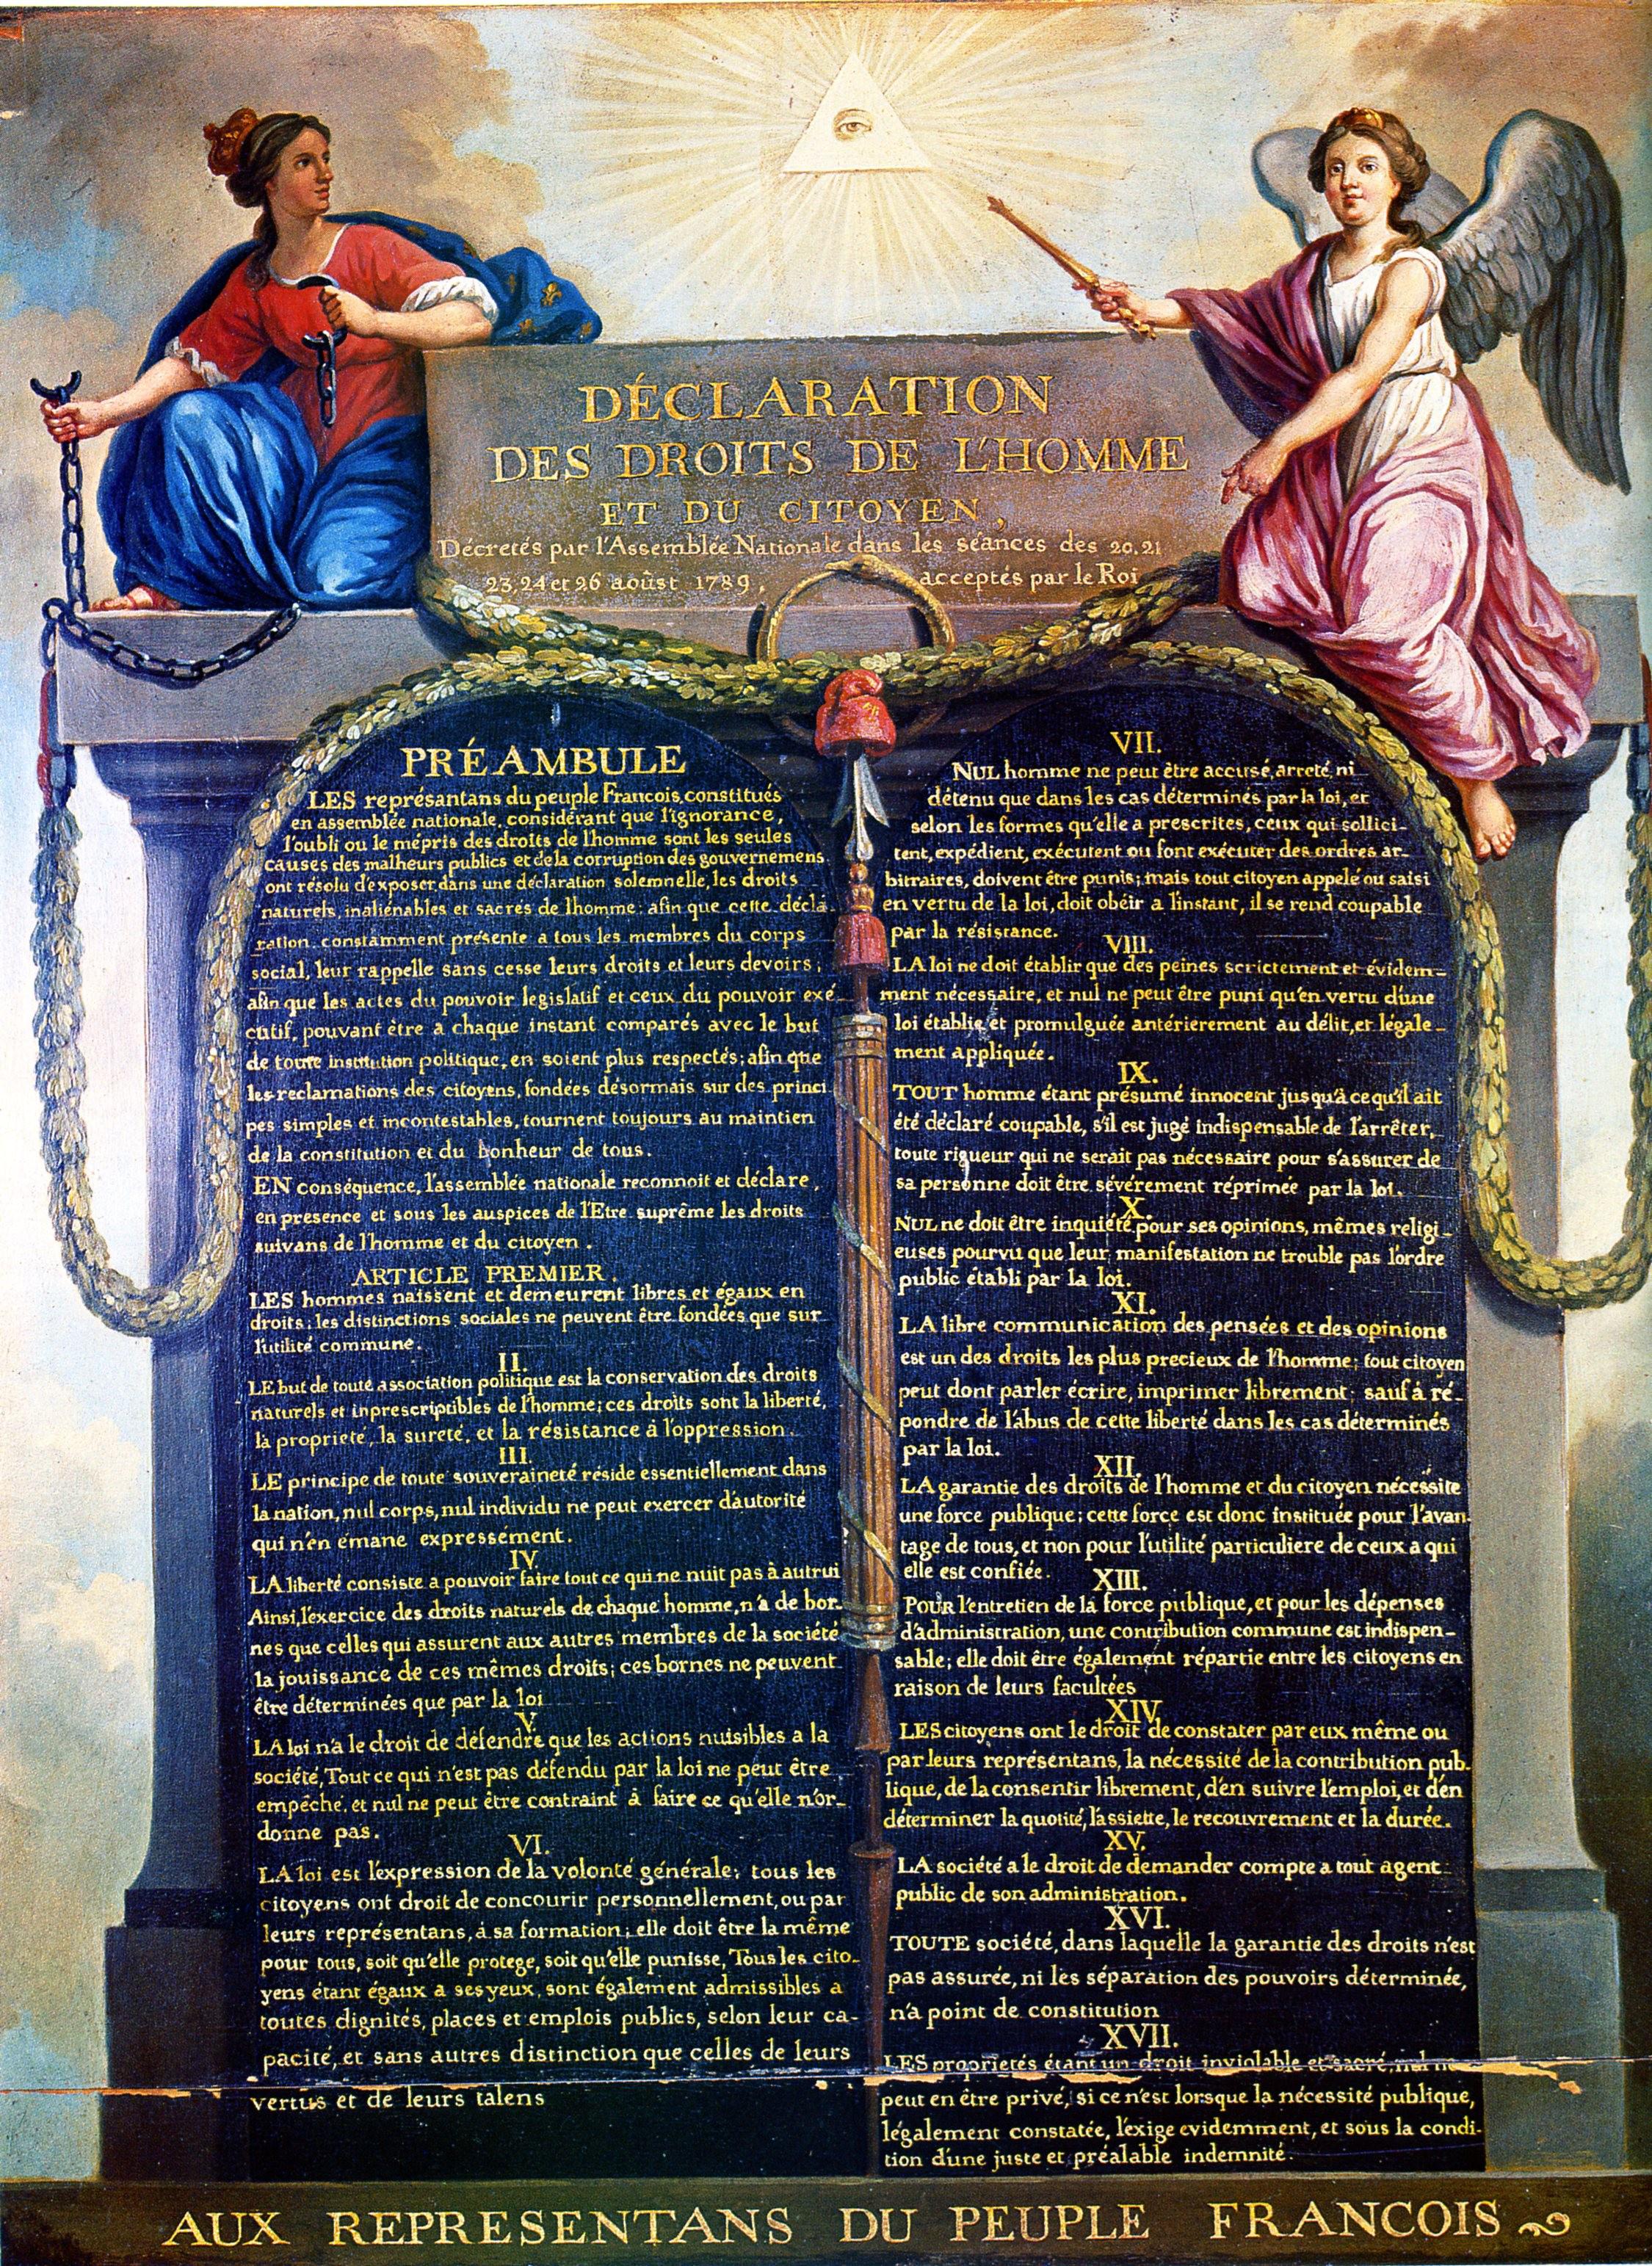 DÉCLARATION
DES DROITS DE L'HOMME
ET DU CITOYEN,
Décretés par l'Assemblée Nationale dans les séances des 20.21
23,24 et 26 aoûst 1789, acceptés par le Roi
PRÉAMBULE
LES représantans du peuple Francois, constitués
en assemblée nationale, considérant que l'ignorance,
l'oubli ou le mépris des droits de l'homme sont les seules
causes des malheurs publics et de la corruption des gouvernemens
ont résolu d'exposer dans une déclaration solemnelle, les droits
naturels, inaliénables et sacrés de l'homme; afin que cette décla-
ration, constamment présente a tous les membres du corps
social, leur rappelle sans cesse leurs droits et leurs devoirs;
afin que les actes du pouvoir legislatif et ceux du pouvoir exé-
cutif, pouvant être a chaque instant comparés avec le but
de toute institution politique, en soient plus respectés; afin que
les reclamations des citoyens, fondées désormais sur des princi-
pes simples et incontestables, tournent toujours au maintien
de la constitution et du bonheur de tous.
EN conséquence, l'assemblée nationale reconnoit et déclare,
en presence et sous les auspices de l'Etre suprême les droits
suivans de l'homme et du citoyen.
ARTICLE PREMIER.
LES hommes naissent et demeurent libres et égaux en
droits; les distinctions sociales ne peuvent être fondées que sur
l'utilité commune.
II.
LE but de toute association politique est la conservation des droits
naturels et inprescriptibles de l'homme; ces droits sont la liberté,
la propriété, la sureté, et la résistance à l'oppression.
III.
LE principe de toute souveraineté réside essentiellement dans
la nation, nul corps, nul individu ne peut exercer d'autorité
qui n'en émane expressément.
IV.
LA liberté consiste a pouvoir faire tout ce qui ne nuit pas à autrui
Ainsi, l'exercice des droits naturels de chaque homme, n'a de bor-
nes que celles qui assurent aux autres membres de la société
la jouissance de ces mêmes droits; ces bornes ne peuvent
être déterminées que par la loi
V.
LA loi n'a le droit de défendre que les actions nuisibles a la
société, Tout ce qui n'est pas défendu par la loi ne peut être
empêché, et nul ne peut être contraint à faire ce qu'elle n'or-
donne pas.
VI.
LA loi est l'expression de la volonté générale; tous les
citoyens ont droit de concourir personnellement, ou par
leurs représentans, à sa formation; elle doit être la même
pour tous, soit qu'elle protege, soit qu'elle punisse, Tous les cito-
yens étant égaux a ses yeux, sont également admissibles a
toutes dignités, places et emplois publics, selon leur ca-
pacité, et sans autres distinction que celles de leurs
vertus et de leurs talens
VII.
NUL homme ne peut être accusé, arreté, ni
détenu que dans les cas déterminés par la loi, et
selon les formes qu'elle a prescrites, ceux qui sollici-
tent, expédient, exécutent ou font exécuter des ordres ar-
bitraires, doivent être punis; mais tout citoyen appelé ou saisi
en vertu de la loi, doit obéir a l'instant, il se rend coupable
par la résistance.
VIII.
LA loi ne doit établir que des peines strictement et évidem-
ment nécessaire, et nul ne peut être puni qu'en vertu d'une
loi établie et promulguée antérierement au délit, et légale-
ment appliquée.
IX.
TOUT homme étant présumé innocent jusqu'à ce qu'il ait
été déclaré coupable, s'il est jugé indispensable de l'arrêter,
toute rigueur qui ne serait pas nécessaire pour s'assurer de
sa personne doit être sévérement réprimée par la loi.
X.
NUL ne doit être inquiété pour ses opinions, mêmes religi-
euses pourvu que leur manifestation ne trouble pas l'ordre
public établi par la loi.
XI.
LA libre communication des pensées et des opinions
est un des droits les plus precieux de l'homme; tout citoyen
peut dont parler écrire, imprimer librement; sauf à ré-
pondre de l'abus de cette liberté dans les cas déterminés
par la loi.
XII.
LA garantie des droits de l'homme et du citoyen nécessite
une force publique; cette force est donc instituée pour l'avan-
tage de tous, et non pour l'utilité particuliere de ceux a qui
elle est confiée.
XIII.
POUR l'entretien de la force publique, et pour les dépenses
d'administration, une contribution commune est indispen-
sable; elle doit être également répartie entre les citoyens en
raison de leurs facultées
XIV.
LES citoyens ont le droit de constater par eux même ou
par leurs représentans, la nécessité de la contribution pub-
lique, de la consentir librement, d'en suivre l'emploi, et d'en
déterminer la quotité, l'assiette, le recouvrement et la durée.
XV.
LA société a le droit de demander compte a tout agent
public de son administration.
XVI.
TOUTE société, dans laquelle la garantie des droits n'est
pas assurée, ni les séparation des pouvoirs déterminée,
n'a point de constitution
XVII.
LES propriétés étant un droit inviolable et sacré, nul ne
peut en être privé, si ce n'est lorsque la nécessité publique,
légalement constatée, l'exige evidemment, et sous la condi-
tion d'une juste et préalable indemnité.
AUX REPRESENTANS DU PEUPLE FRANCOIS